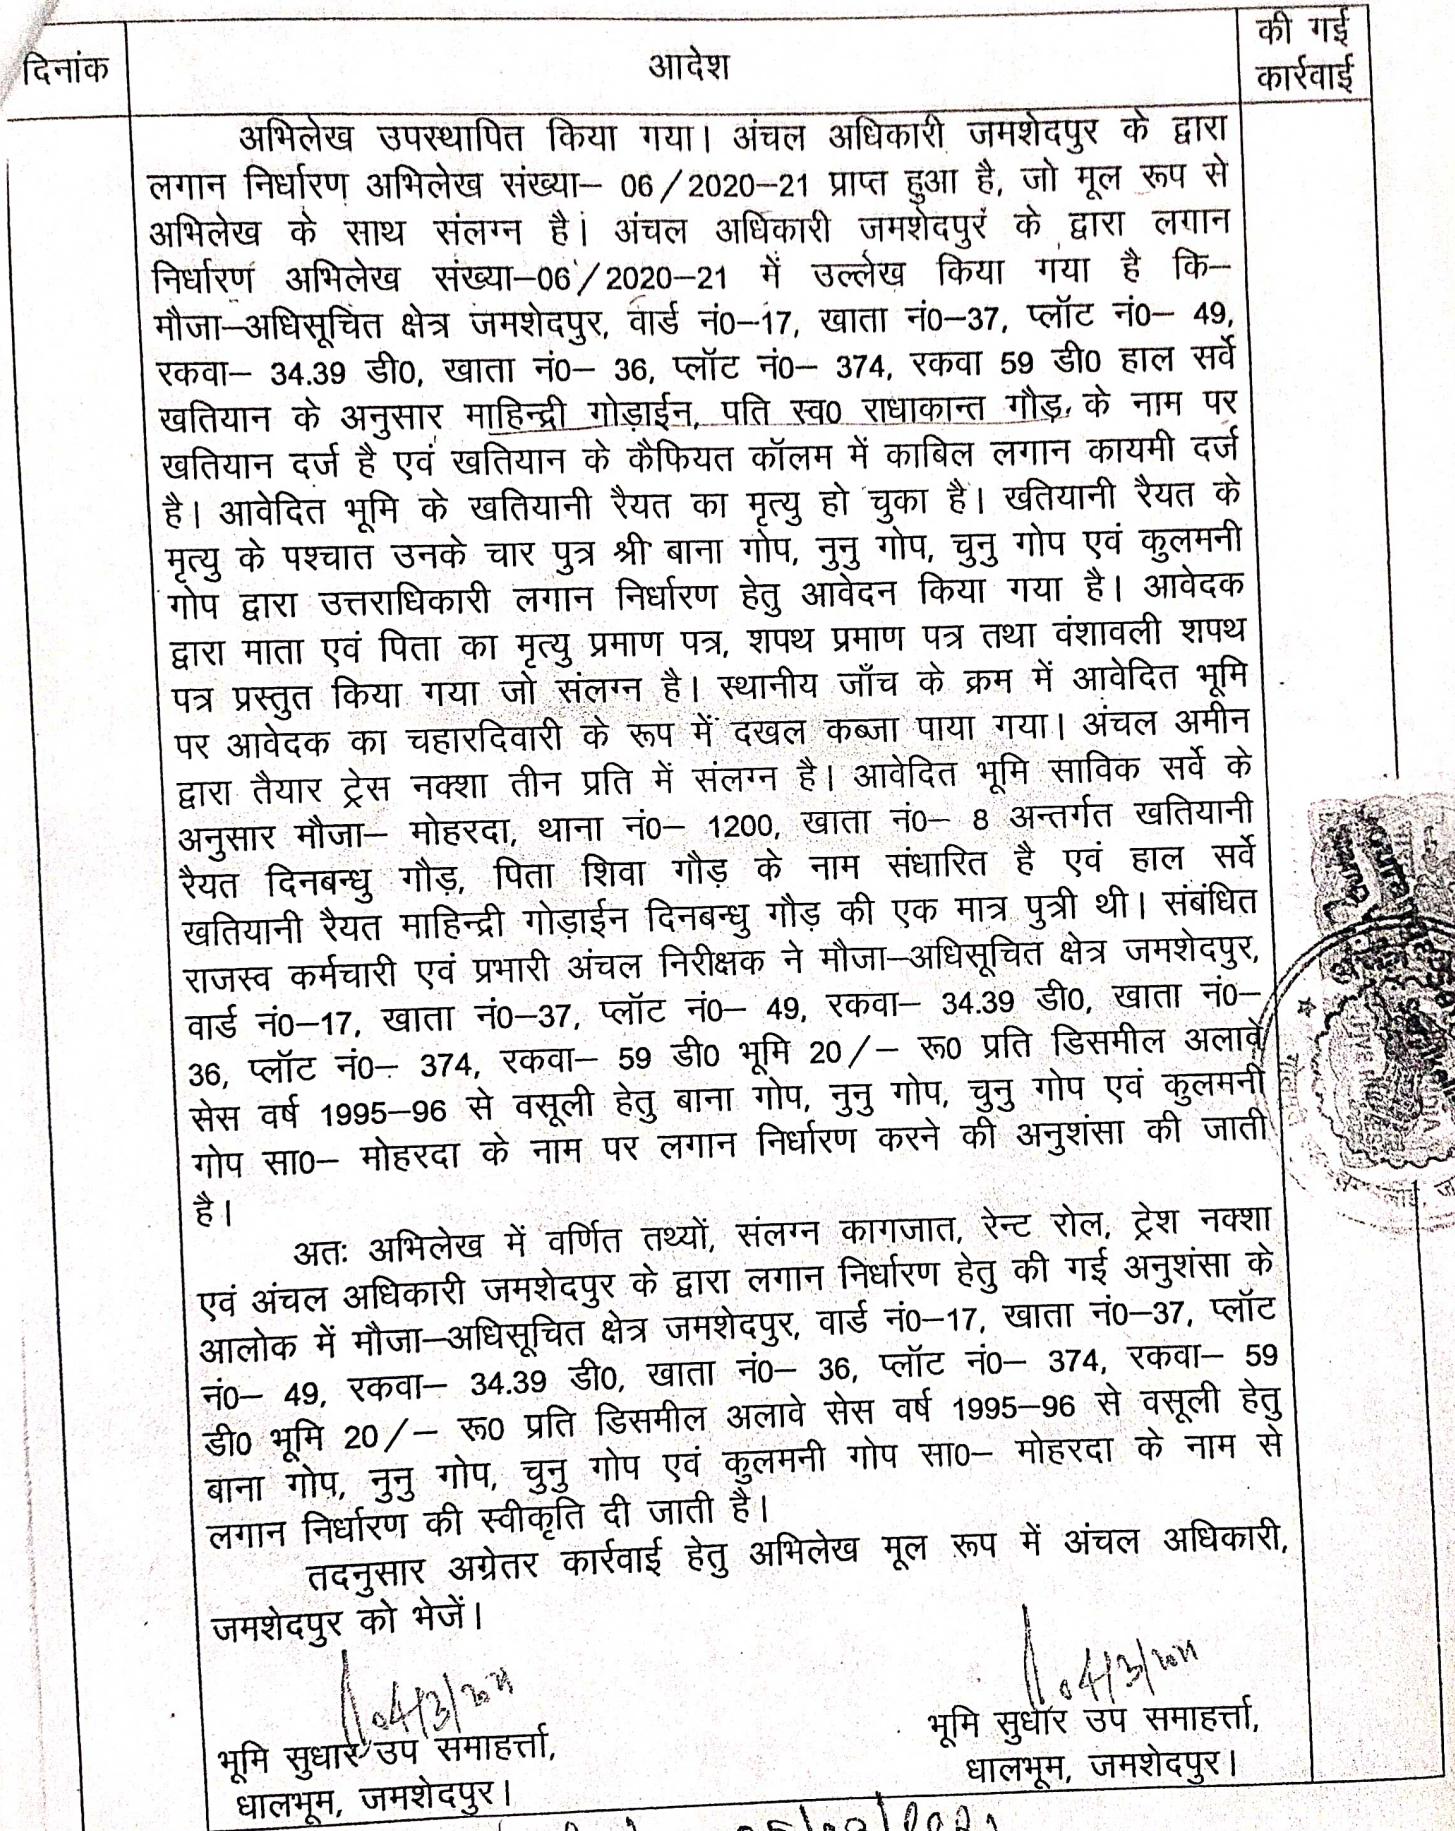 दिनांक
आदेश
की गई
कार्रवाई
अभिलेख उपस्थापित किया गया। अंचल अधिकारी जमशेदपुर के द्वारा
लगान निर्धारण अभिलेख संख्या– 06/2020–21 प्राप्त हुआ है, जो मूल रूप से
अभिलेख के साथ संलग्न है। अंचल अधिकारी जमशेदपुर के द्वारा लगान
निर्धारण अभिलेख संख्या–06/2020–21 में उल्लेख किया गया है कि–
मौजा–अधिसूचित क्षेत्र जमशेदपुर, वार्ड नं0–17, खाता नं0–37, प्लॉट नं0– 49,
रकवा– 34.39 डी0, खाता नं0– 36, प्लॉट नं0– 374, रकवा 59 डी0 हाल सर्वे
खतियान के अनुसार माहिन्द्री गोड़ाईन, पति स्व0 राधाकान्त गौड़, के नाम पर
खतियान दर्ज है एवं खतियान के कैफियत कॉलम में काबिल लगान कायमी दर्ज
है। आवेदित भूमि के खतियानी रैयत का मृत्यु हो चुका है। खतियानी रैयत के
मृत्यु के पश्चात उनके चार पुत्र श्री बाना गोप, नुनु गोप, चुनु गोप एवं कुलमनी
गोप द्वारा उत्तराधिकारी लगान निर्धारण हेतु आवेदन किया गया है। आवेदक
द्वारा माता एवं पिता का मृत्यु प्रमाण पत्र, शपथ प्रमाण पत्र तथा वंशावली शपथ
पत्र प्रस्तुत किया गया जो संलग्न है। स्थानीय जाँच के क्रम में आवेदित भूमि
पर आवेदक का चहारदिवारी के रूप में दखल कब्जा पाया गया। अंचल अमीन
द्वारा तैयार ट्रेस नक्शा तीन प्रति में संलग्न है। आवेदित भूमि साविक सर्वे के
अनुसार मौजा– मोहरदा, थाना नं0– 1200, खाता नं0– 8 अन्तर्गत खतियानी
रैयत दिनबन्धु गौड़, पिता शिवा गौड़ के नाम संधारित है एवं हाल सर्वे
खतियानी रैयत माहिन्द्री गोड़ाईन दिनबन्धु गौड़ की एक मात्र पुत्री थी। संबंधित
राजस्व कर्मचारी एवं प्रभारी अंचल निरीक्षक ने मौजा–अधिसूचित क्षेत्र जमशेदपुर,
वार्ड नं0–17, खाता नं0–37, प्लॉट नं0– 49, रकवा– 34.39 डी0, खाता नं0–
36, प्लॉट नं0– 374, रकवा– 59 डी0 भूमि 20/– रू0 प्रति डिसमील अलावे
सेस वर्ष 1995–96 से वसूली हेतु बाना गोप, नुनु गोप, चुनु गोप एवं कुलमनी
गोप सा0– मोहरदा के नाम पर लगान निर्धारण करने की अनुशंसा की जाती
है।
अतः अभिलेख में वर्णित तथ्यों, संलग्न कागजात, रेन्ट रोल, ट्रेश नक्शा
एवं अंचल अधिकारी जमशेदपुर के द्वारा लगान निर्धारण हेतु की गई अनुशंसा के
आलोक में मौजा–अधिसूचित क्षेत्र जमशेदपुर, वार्ड नं0–17, खाता नं0–37, प्लॉट
नं0– 49, रकवा– 34.39 डी0, खाता नं0– 36, प्लॉट नं0– 374, रकवा– 59
डी0 भूमि 20/– रू0 प्रति डिसमील अलावे सेस वर्ष 1995–96 से वसूली हेतु
बाना गोप, नुनु गोप, चुनु गोप एवं कुलमनी गोप सा0– मोहरदा के नाम से
लगान निर्धारण की स्वीकृति दी जाती है।
तदनुसार अग्रेतर कार्रवाई हेतु अभिलेख मूल रूप में अंचल अधिकारी,
जमशेदपुर को भेजें।
भूमि सुधार उप समाहर्त्ता,
धालभूम, जमशेदपुर।
भूमि सुधार उप समाहर्त्ता,
धालभूम, जमशेदपुर।